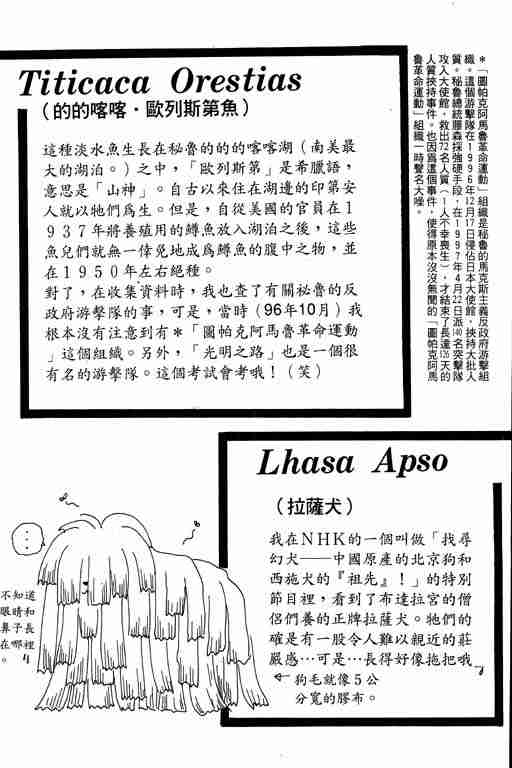 Titicaca Orestias
（的的喀喀．歐列斯第魚）
這種淡水魚生長在秘魯的的的喀喀湖（南美最
大的湖泊。）之中，「歐列斯第」是希臘語，
意思是「山神」。自古以來住在湖邊的印第安
人就以牠們為生。但是，自從美國的官員在１
９３７年將養殖用的鱒魚放入湖泊之後，這些
魚兒們就無一倖免地成為鱒魚的腹中之物，並
在１９５０年左右絕種。
對了，在收集資料時，我也查了有關祕魯的反
政府游擊隊的事，可是，當時（96年10月）我
根本沒有注意到有＊「圖帕克阿馬魯革命運動
」這個組織。另外，「光明之路」也是一個很
有名的游擊隊。這個考試會考哦！（笑）
＊「圖帕克阿馬魯革命運動」組織是秘魯的馬克斯主義反政府游擊組
織。這個游擊隊在１９９６年12月17日侵佔日本大使館，挾持大批人
質。秘魯總統藤森採強硬手段，在１９９７年４月22日派140名突擊隊
攻入大使館，救出72名人質（１人不幸喪生），才結束了長達126天的
人質挾持事件。也因為這個事件，使得原本沒沒無聞的「圖帕克阿馬
魯革命運動」組織一時聲名大噪。
Lhasa Apso
（拉薩犬）
我在ＮＨＫ的一個叫做「找尋
幻犬──中國原產的北京狗和
西施犬的『祖先』！」的特別
節目裡，看到了布達拉宮的僧
侶們養的正牌拉薩犬。牠們的
確是有一股令人難以親近的莊
嚴感…可是…長得好像拖把哦
狗毛就像５公
分寬的膠布。
…
不知道
眼睛和
鼻子長
在哪裡
。